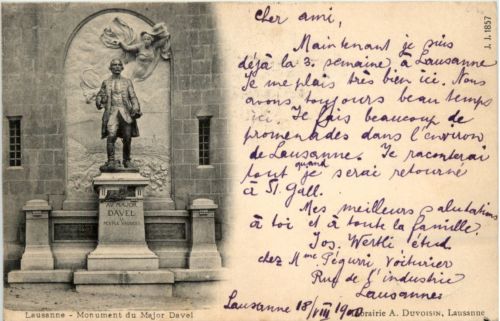 cher ami,
Maintenant je suis
déjà la 3. semaine à Lausanne
Je me plais très bien ici. Nous
avons toujours beau temps
ici. Je fais beaucoup de
promenades dans l'environ
de Lausanne. Je raconterai
tout quand je serai retourné
à St. Gall.
Mes meilleurs salutations
à toi et à toute la famille.
Jos. Wertli étud
chez Mme Péguiri voiturier
Rue de l'industrie
Lausanne
Lausanne 18/VIII 1900
J. J. 1857
AU MAJOR
DAVEL
LE
PEUPLE VAUDOIS
Lausanne - Monument du Major Davel
Librairie A. DUVOISIN, Lausanne